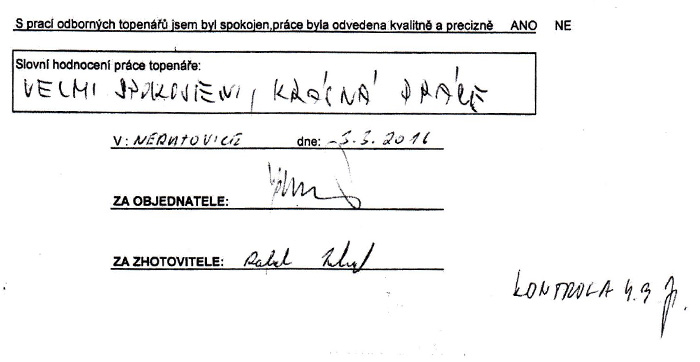 S prací odborných topenářů jsem byl spokojen,práce byla odvedena kvalitně a precizně ANO NE
Slovní hodnocení práce topenáře:
VELMI SPOKOJENI, KRÁSNÁ PRÁCE
V: NERATOVICE dne: 3.3.2016
ZA OBJEDNATELE:
ZA ZHOTOVITELE:
KONTROLA 4.3